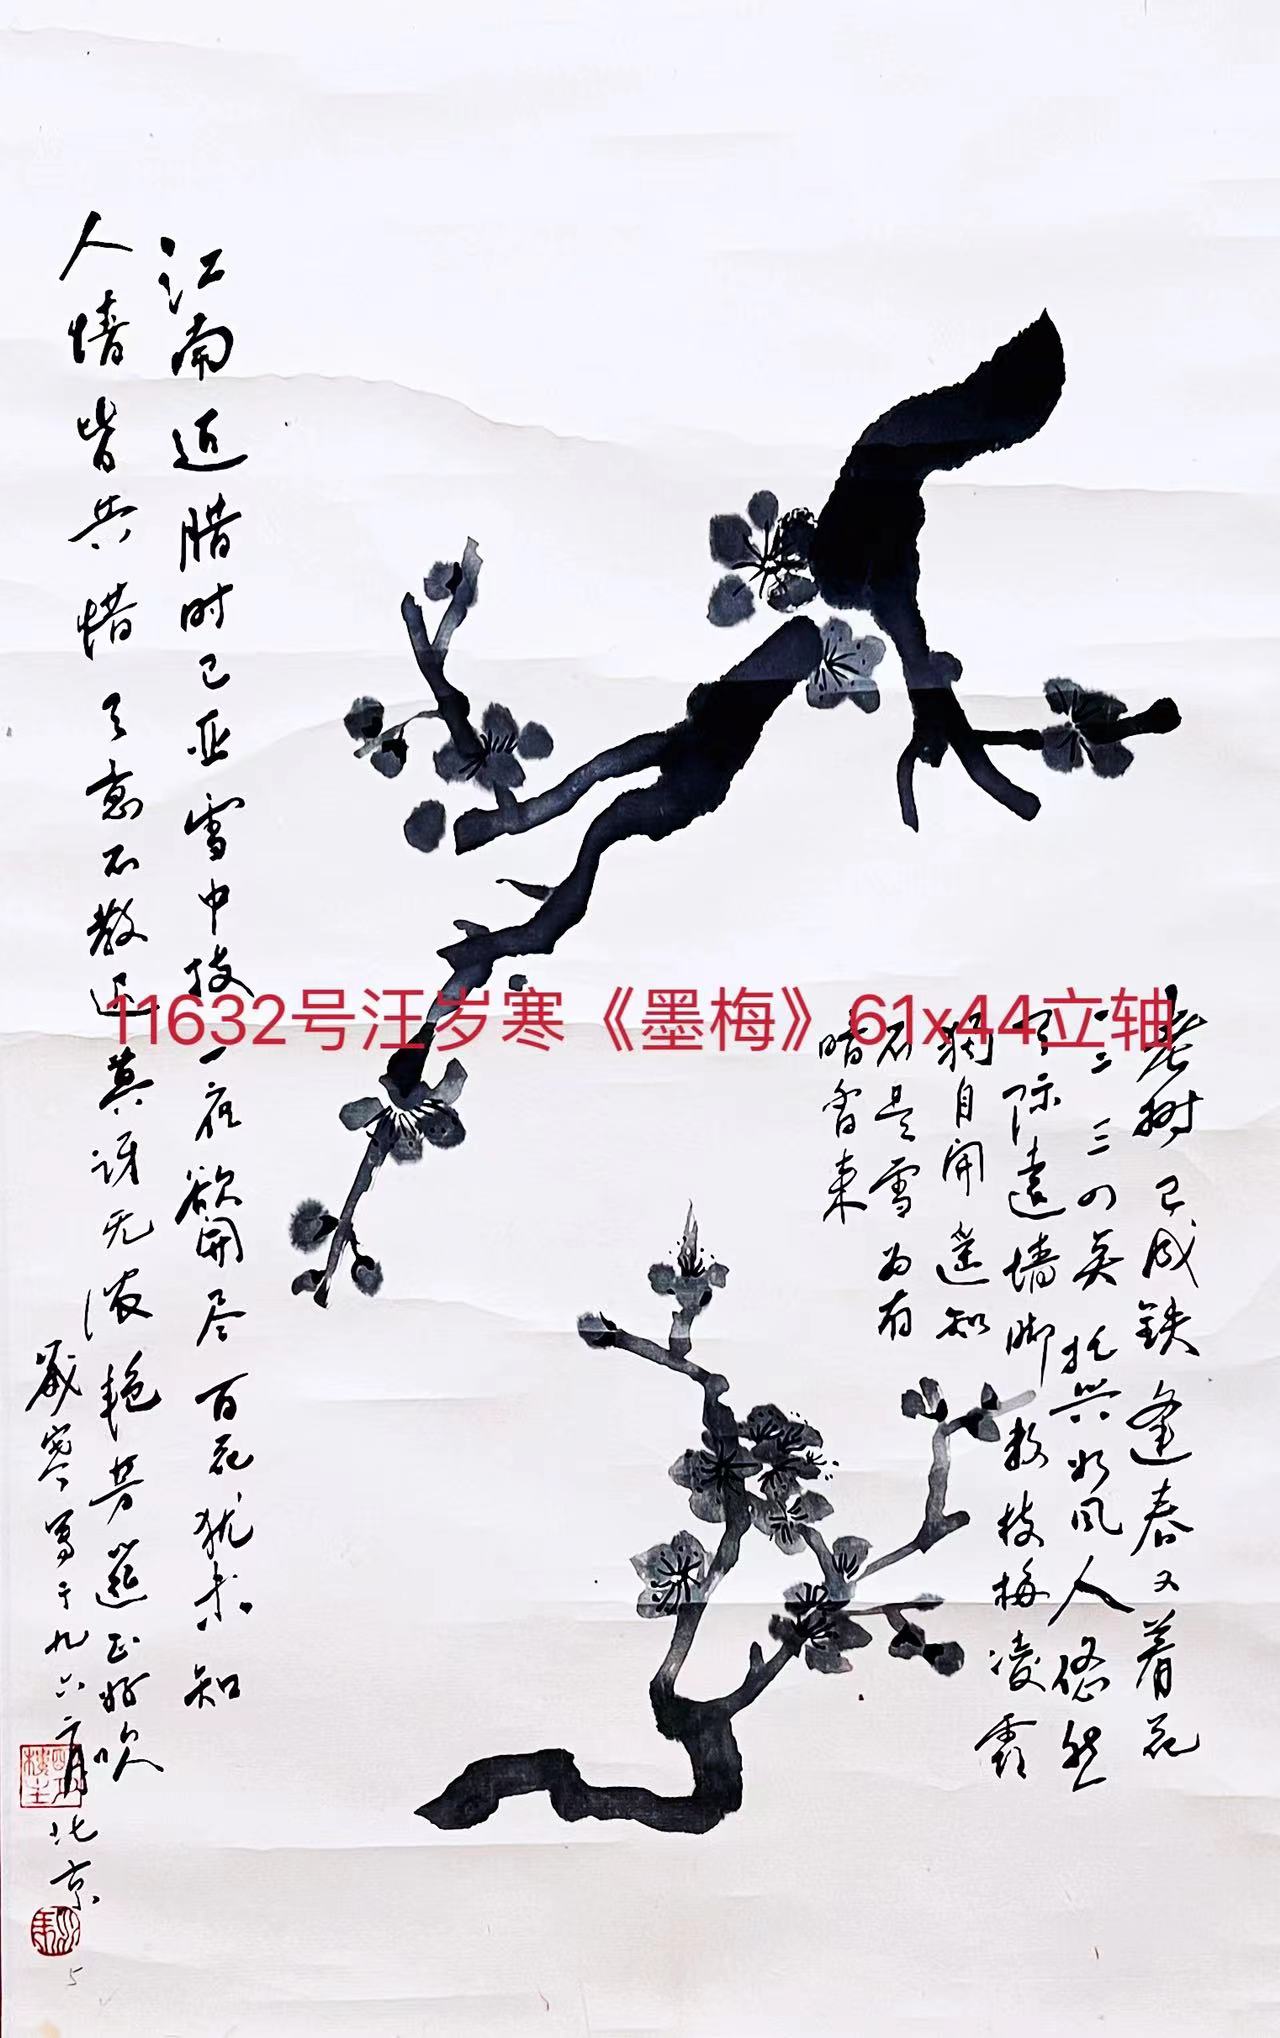 江南近腊时已亚雪中枝一夜欲开尽百花犹未知
人情皆共惜天意不教迟莫讶无浓艳芳筵正好吹
岁寒写于九六二月北京
老树已成铁逢春又著花
二三三四英托兴如风人悠然
了际远墙脚数枝梅凌霜
独自开遥知
不是雪为有
暗香来
11632号汪岁寒《墨梅》61x44立轴
5